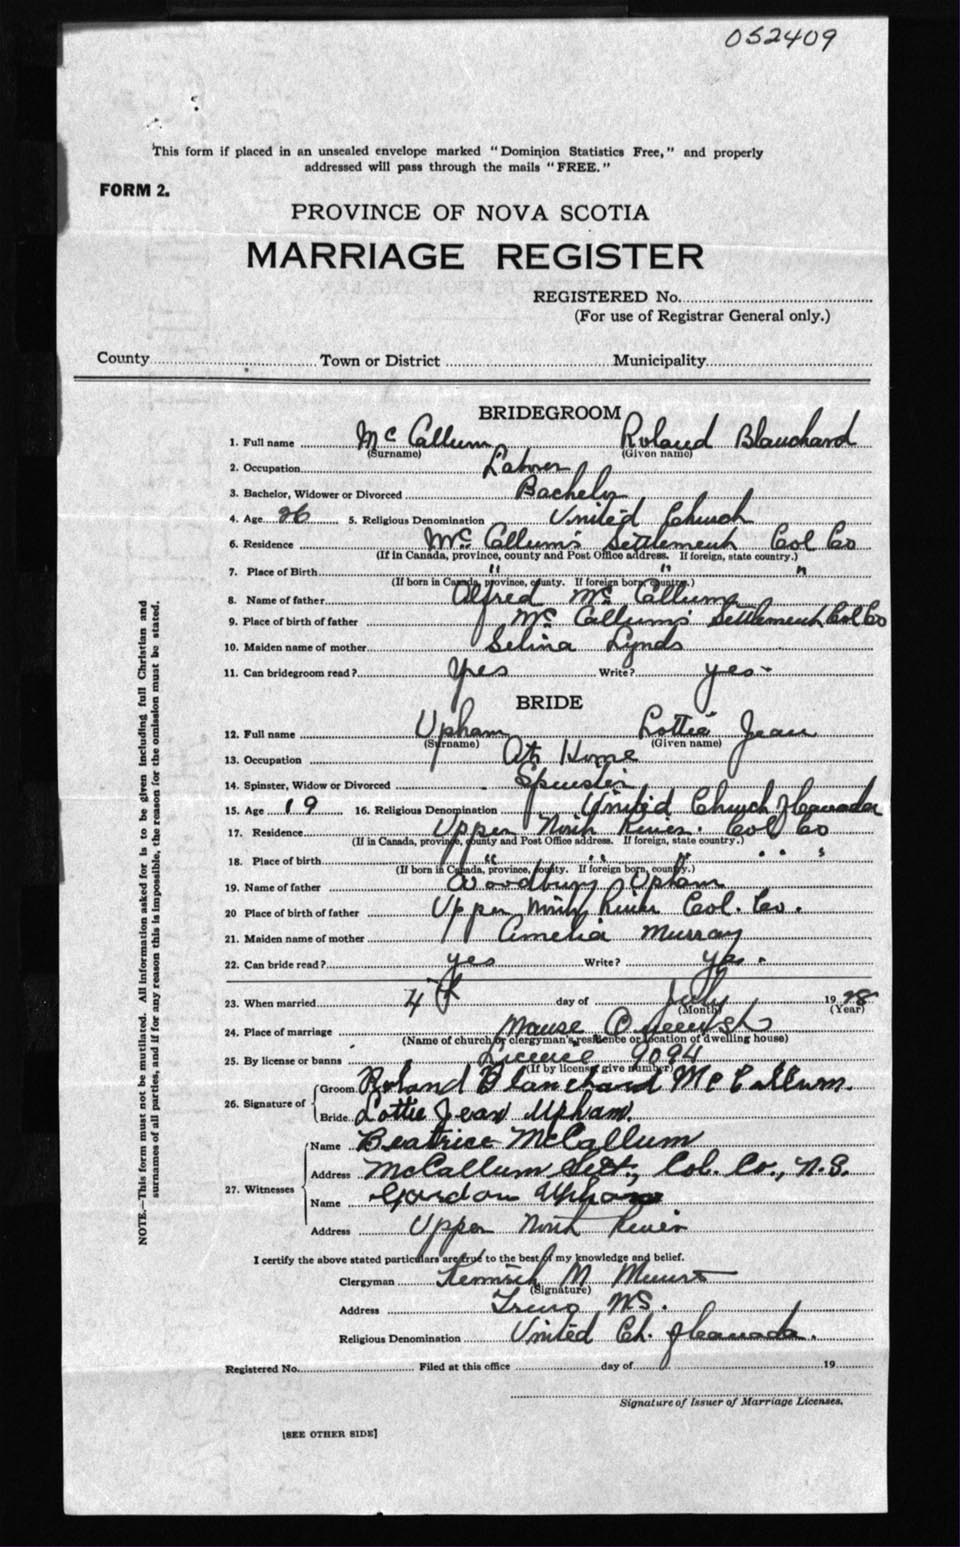 052409
This form if placed in an unsealed envelope marked "Dominion Statistics Free," and properly
addressed will pass through the mails "FREE."
FORM 2.
PROVINCE OF NOVA SCOTIA
MARRIAGE REGISTER
REGISTERED No.
(For use of Registrar General only.)
County Town or District Municipality
BRIDEGROOM
1. Full name McCallum Roland Blanchard
(Surname) (Given name)
2. Occupation Laborer
3. Bachelor, Widower or Divorced Bachelor
4. Age 26 5. Religious Denomination United Church
6. Residence McCallum's Settlement Col Co
(If in Canada, province, county and Post Office address. If foreign, state country.)
7. Place of Birth " " "
(If born in Canada, province, county. If foreign born, country.)
8. Name of father Alfred McCallum
9. Place of birth of father McCallum's Settlement, Col Co
10. Maiden name of mother Selina Lynds
11. Can bridegroom read? Yes Write? yes
BRIDE
12. Full name Upham Lottie Jean
(Surname) (Given name)
13. Occupation At Home
14. Spinster, Widow or Divorced Spinster
15. Age 19 16. Religious Denomination United Church of Canada
17. Residence Upper North River. Col Co
(If in Canada, province, county and Post Office address. If foreign, state country.)
18. Place of birth " " " "
(If born in Canada, province, county. If foreign born, country.)
19. Name of father Woodbury Upham
20 Place of birth of father Upper North River Col. Co.
21. Maiden name of mother Amelia Murray
22. Can bride read? yes Write? yes.
23. When married 4th day of July 1928
(Month) (Year)
24. Place of marriage Manse
(Name of church or clergyman's residence or location of dwelling house)
25. By license or banns Licence 9094
(If by license give number)
26. Signature of Groom Roland Blanchard McCallum.
Bride Lottie Jean Upham.
27. Witnesses Name Beatrice McCallum
Address McCallum Sett., Col. Co., N.S.
Name Gordon Upham
Address Upper North River
I certify the above stated particulars are true to the best of my knowledge and belief.
Clergyman M
(Signature)
Address Truro N.S.
Religious Denomination United Ch. of Canada.
Registered No. Filed at this office day of 19
Signature of Issuer of Marriage Licenses.
[SEE OTHER SIDE]
NOTE.—This form must not be mutilated. All information asked for is to be given including full Christian and
surnames of all parties, and if for any reason this is impossible, the reason for the omission must be stated.